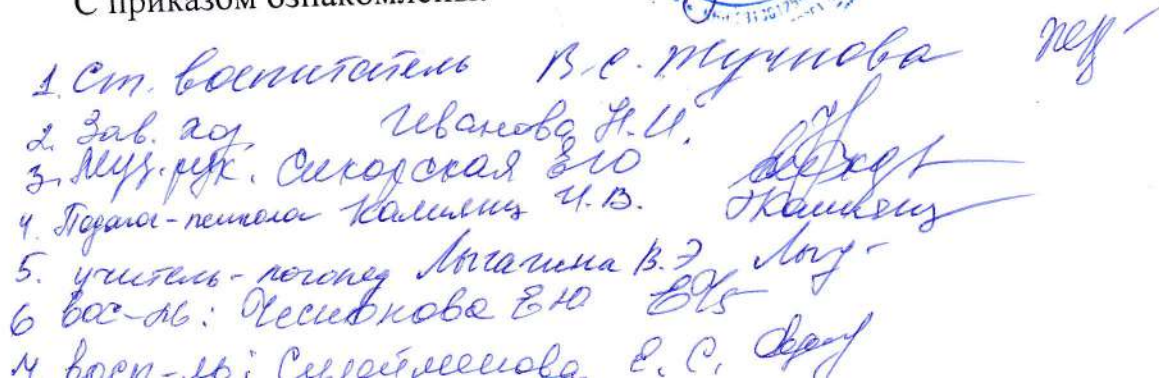 С приказом ознакомлены
1. Ст. воспитатель В.С. Жучкова
2. Зав. хоз. Иванова Н.И.
3. Муз. рук. Сикорская ЕЮ
4. Педагог-психолог Калиниц И.В.
5. учитель-логопед Лыгагина В.Э
6 вос-ль: Чеснокова ЕЮ
7 восп-ль: Е.С.